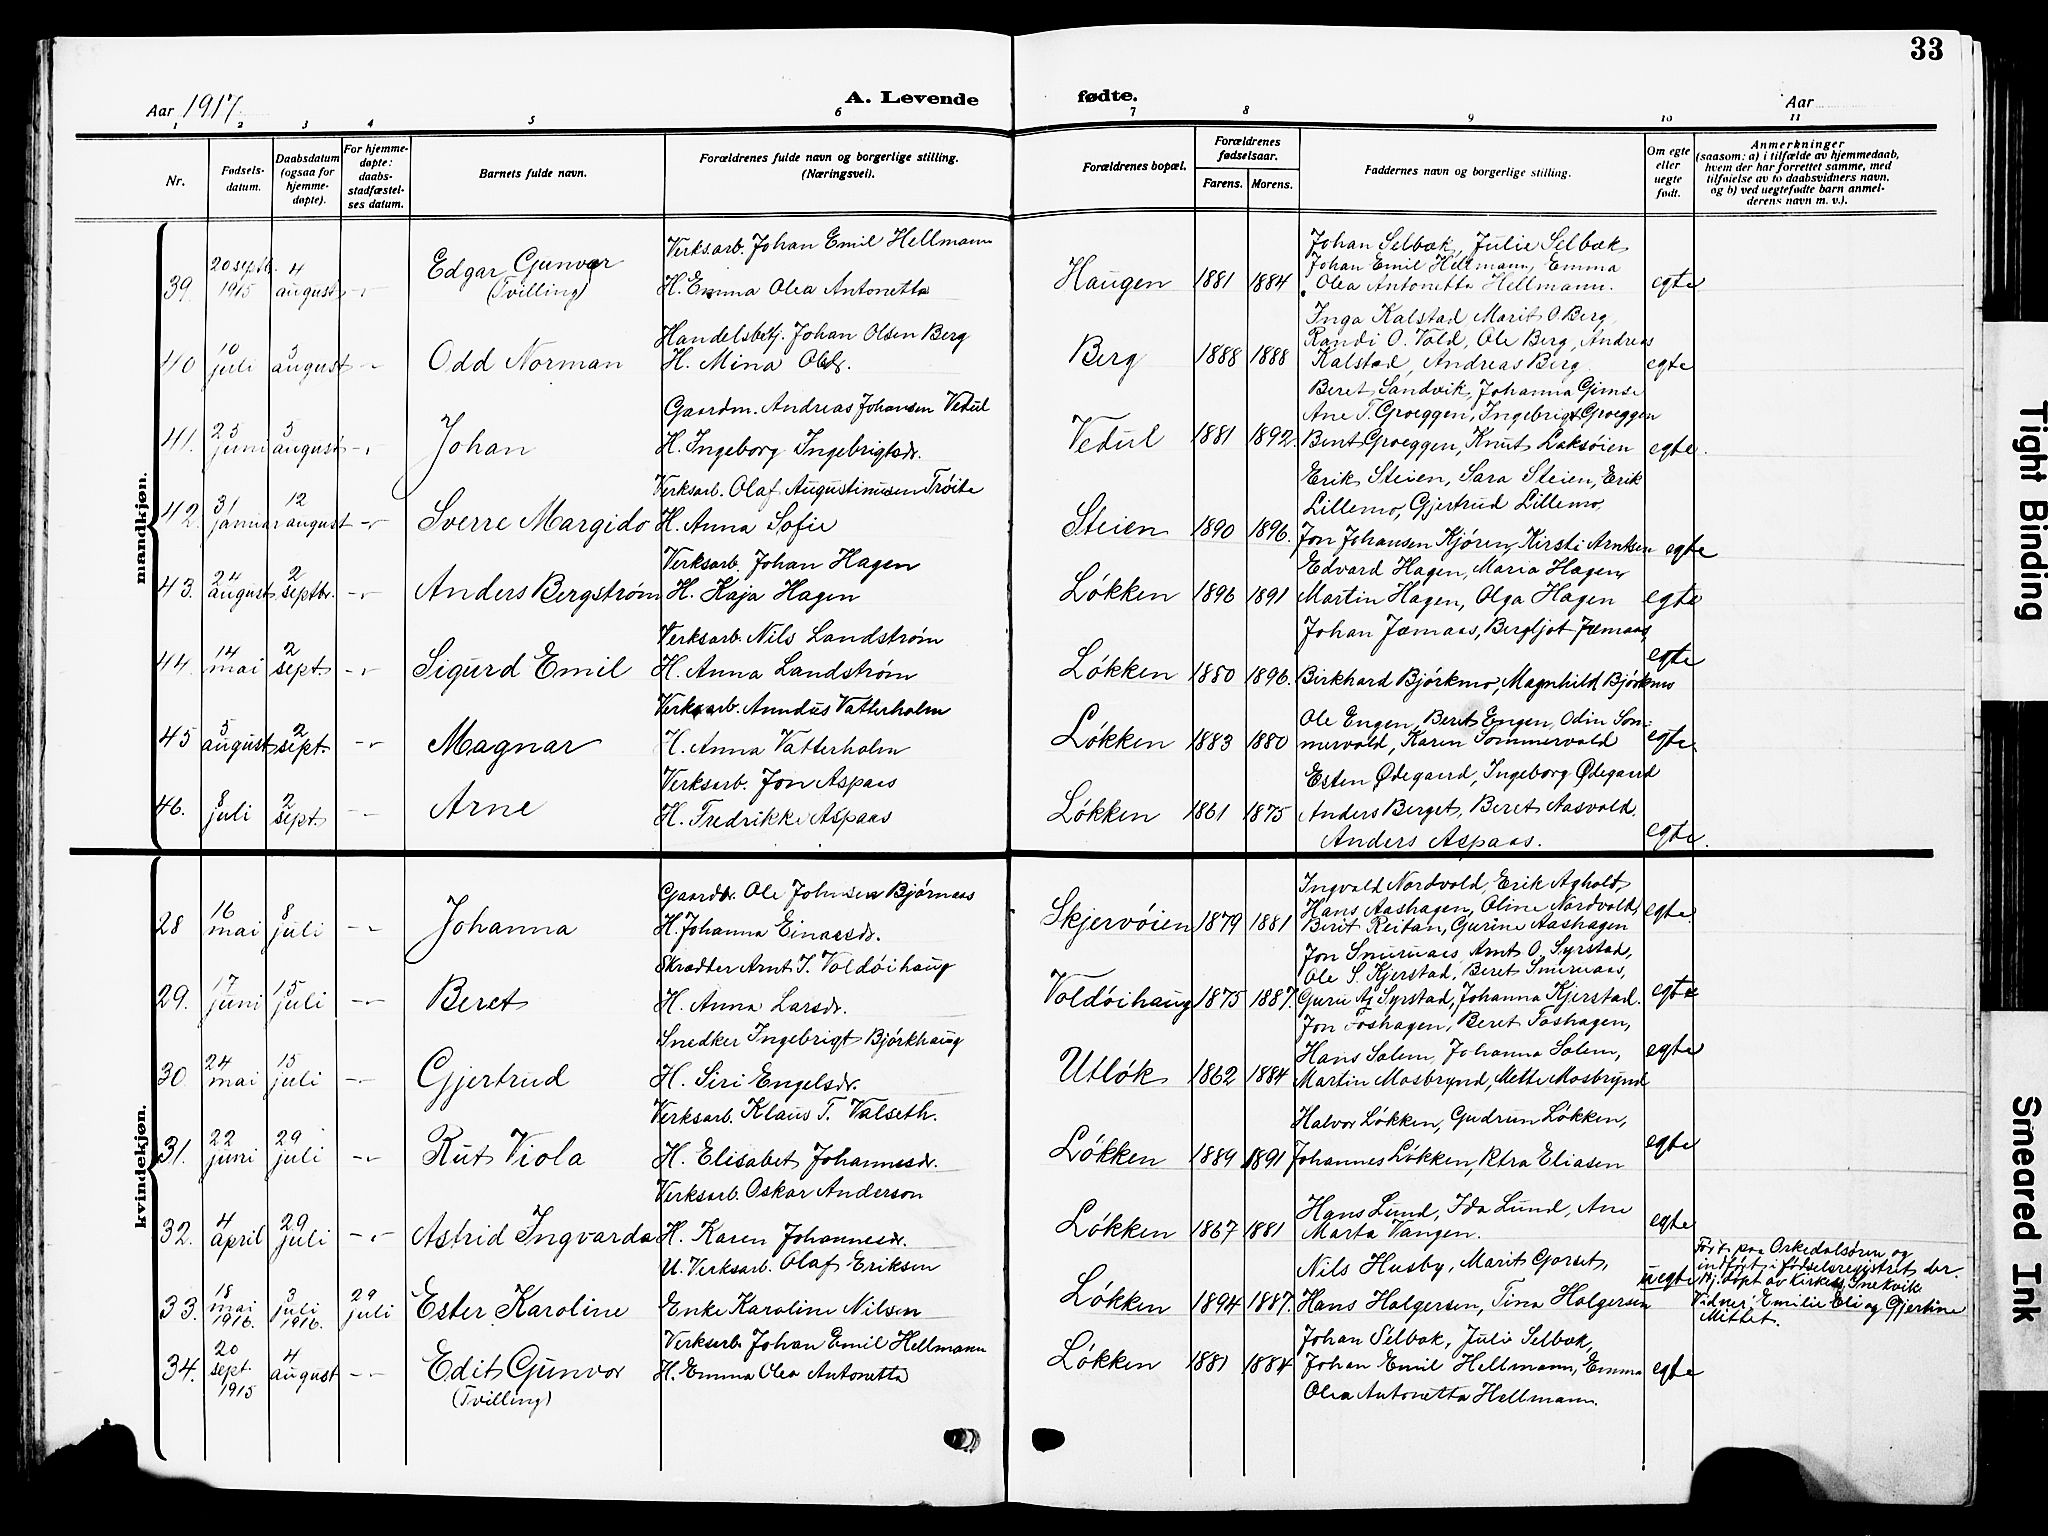 33
Aar 1917.
A. Levende
fødte.
Aar
1 2 3 4 5 6 7 8 9 10 11
Nr.
Fødsels-
datum.
Daabsdatum
(ogsaa for
hjemme-
døpte).
For hjemme-
døpte:
daabs-
stadfæstel-
ses datum.
Barnets fulde navn.
Forældrenes fulde navn og borgerlige stilling.
(Næringsvei).
Forældrenes bopæl.
Forældrenes
fødselsaar.
Farens. Morens.
Faddernes navn og borgerlige stilling.
Om egte
eller
uegte
født.
Anmerkninger
(saasom: a) i tilfælde av hjemmedaab,
hvem der har forrettet samme, med
tilføielse av to daabsvidners navn,
og b) ved uegtefødte barn anmel-
derens navn m. v.).
mandkjøn.
39. 20 septb. 1915 4 august -"- Edgar Gunvor (Tvilling)
Verksarb. Johan Emil Hellmann
H. Emma Olea Antonetta
Haugen 1881 1884
Johan Selbæk, Julie Selbæk
Johan Emil Hellmann, Emma
Olea Antonetta Hellmann.
egte
40 10 juli 5 august -"- Odd Norman
Handelsbetj. Johan Olsen Berg
H. Mina Olsdr.
Berg 1888 1888
Inga Kalstad, Marit O Berg,
Randi O. Vold, Ole Berg, Andreas
Kalstad, Andreas Berg
egte
41. 25 juni 5 august -"- Johan
Gaardm. Andreas Johansen Vedul
H. Ingeborg Ingebrigtsdr.
Vedul 1881 1892.
Beret Sandvik, Johanna Gimse
Ane T. Groeggen, Ingebrigt Groeggen
Bent Groeggen, Knut Laksøien
egte.
42. 31 januar 12 august -"- Sverre Margido
Verksarb. Olaf Augustinusen Trøite
H. Anna Sofie
Steien 1890 1896.
Erik Steien, Sara Steien, Erik
Lillemo, Gjertrud Lillemo,
Jon Johansen Kjøren, Kirsti Arntsen
egte
43. 24 august 2 septbr. -"- Anders Bergstrøm
Verksarb. Johan Hagen
H. Kaja Hagen
Løkken 1896 1891
Edvard Hagen, Maria Hagen,
Martin Hagen, Olga Hagen
egte
44. 14 mai 2 sept. -"- Sigurd Emil
Verksarb. Nils Landstrøm
H. Anna Landstrøm
Løkken 1880 1896.
Johan Jæmaas, Bergljot Jæmaas,
Birkhard Bjørkmo, Magnhild Bjørkmo
egte
45 5 august 2 sept. -"- Magnar
Verksarb. Amndus Vatterholm
H. Anna Vatterholm
Løkken 1883 1880
Ole Engen, Beret Engen, Odin Som-
mervold, Karen Sommervold
egte.
46. 8 juli 2 sept. -"- Arne
Verksarb. Jon Aspaas
H. Fredrikke Aspaas
Løkken 1861 1875
Esten Ødegaard, Ingeborg Ødegaard
Anders Berget, Beret Aasvold.
Anders Aspaas.
egte.
kvindekjøn.
28 16 mai 8 juli -"- Johanna
Gaardbr. Ole Johnsen Bjørnaas
H. Johanna Einarsdr.
Skjervøien 1879 1881
Ingvald Nordvold, Erik Agholt,
Hans Aashagen, Oline Nordvold,
Berit Reitan, Gurine Aashagen
egte.
29. 17 juni 15 juli -"- Beret
Skrædder Arnt I. Voldøihaug
H. Anna Larsdr.
Voldøihaug 1875 1887.
Jon Smuruaas, Arnt O. Syrstad,
Ole S. Kjerstad, Beret Smuruaas,
Guru Aj Syrstad, Johanna Kjerstad.
egte
30. 24 mai 15 juli -"- Gjertrud
Snedker Ingebrigt Bjørkhaug
H. Siri Engelsdr.
Utløk 1862 1884
Jon Foshagen, Beret Foshagen,
Hans Solem, Johanna Solem,
Martin Mosbrynd, Mette Mosbrynd
egte
31. 22 juni 29 juli -"- Rut Viola
Verksarb. Klaus T. Valseth.
H. Elisabet Johannesdr.
Løkken 1889 1891
Halvor Løkken, Gudrun Løkken,
Johannes Løkken, Eliasen
egte
32. 4 april 29 juli -"- Astrid Ingvarda
Verksarb. Oskar Anderson
H. Karen Johannesdr.
Løkken 1867 1881
Hans Lund, Ida Lund, Ane
Marta Vangen.
egte
33. 18 mai 1916 3 juli 1916. 29 juli Ester Karoline
U. Verksarb. Olaf Eriksen
Enke Karoline Nilsen
Løkken 1894 1887.
Nils Husby, Marit Gorset,
Hans Holgersen, Tina Holgersen
uegte
Født paa Orkedalsøren og
indført i fødselsregistret der.
Hj. døpt av Kirkes. Snekvik
Vidner: Emilie Eli og Gjertine
Mittet.
34. 20 sept. 1915 4 august -"- Edit Gunvor (Tvilling)
Verksarb. Johan Emil Hellmann
H. Emma Olea Antonetta
Løkken 1881 1884
Johan Selbæk, Juli Selbæk,
Johan Emil Hellmann, Emma
Olea Antonetta Hellmann.
egte
Tight Binding
Smeared Ink